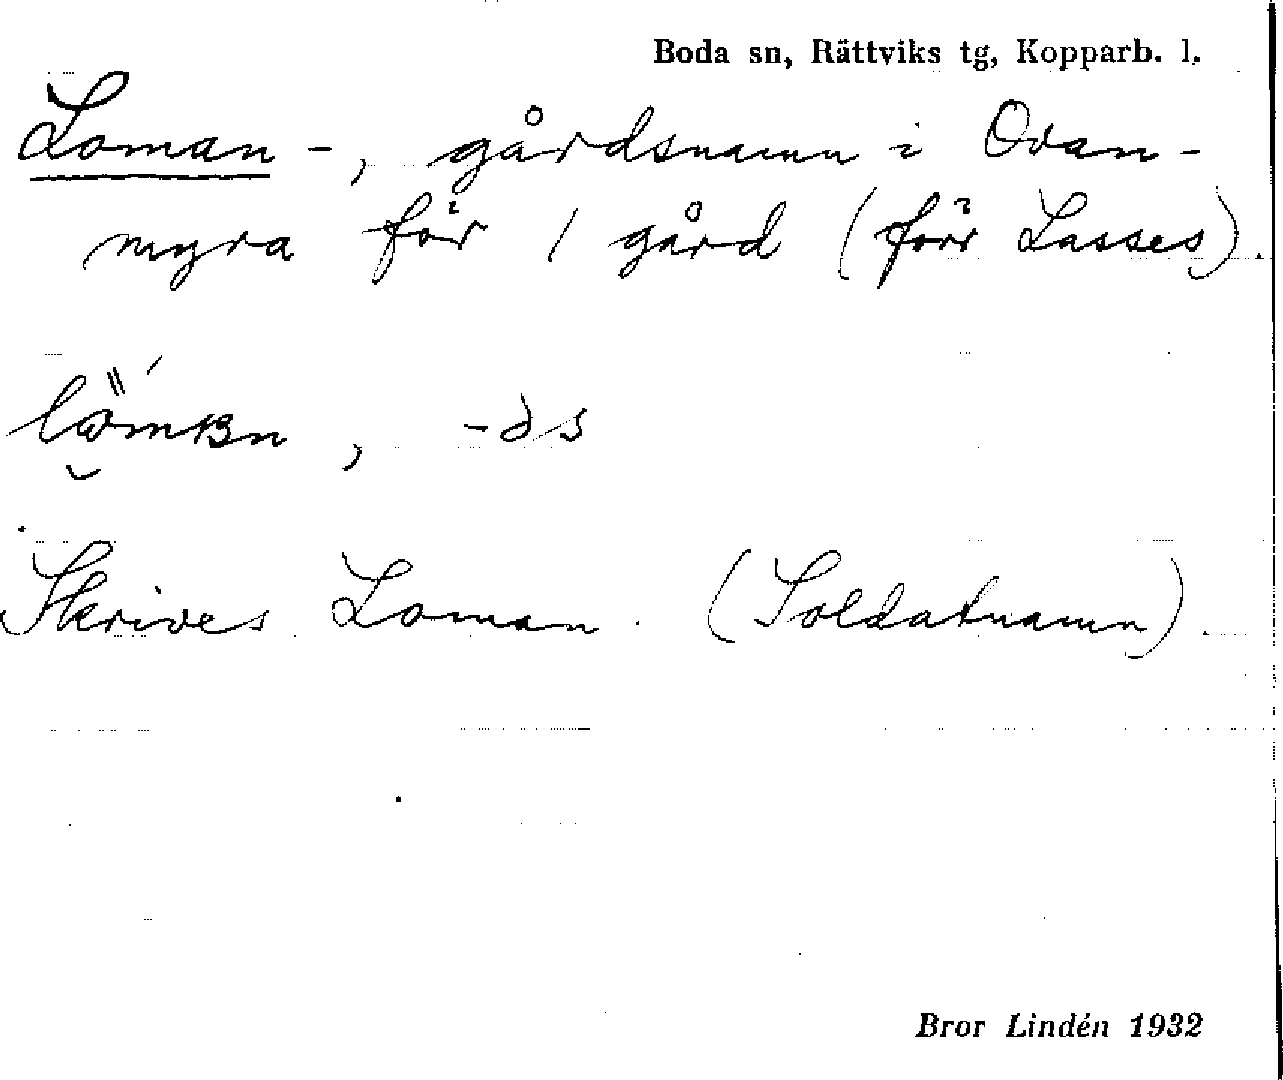 Boda sn, Rättviks tg, Kopparb. l.
Loman-, gårdsnamn i Ovan-
myra för 1 gård (förr Lasses).
, -ǝs
Skrives Loman. (Soldatnamn).
Bror Lindén 1932